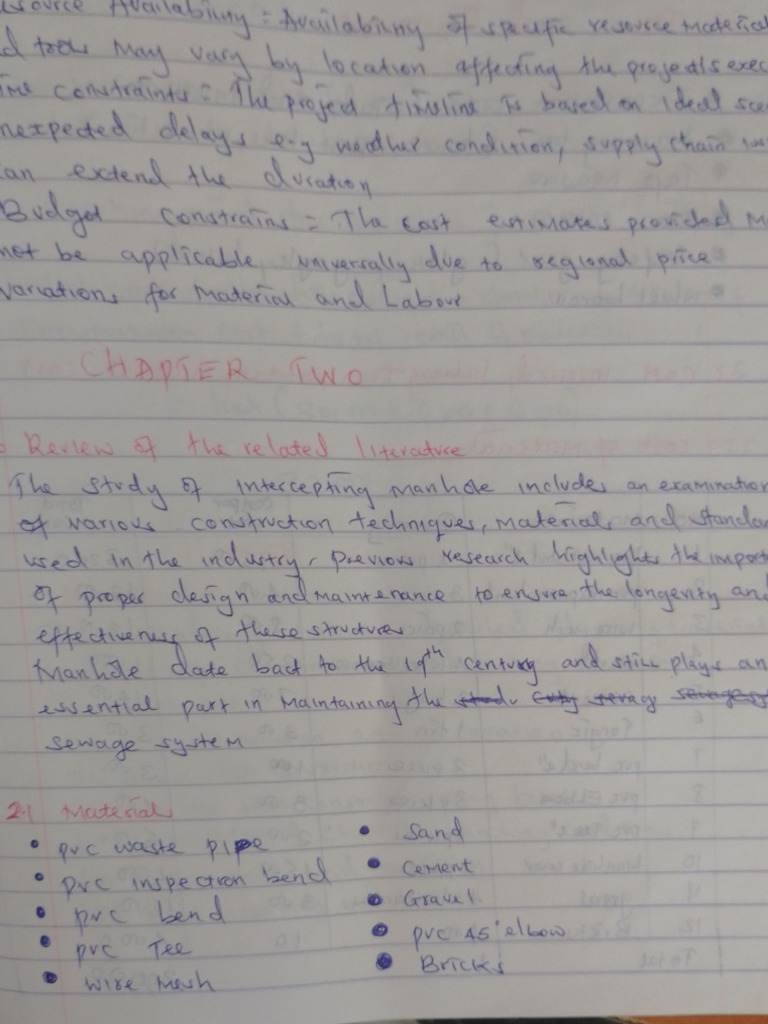 source Availability = Availability of specific resource material
d tools may vary by location affecting the projects exec
me constraints = The project timeline is based on ideal sce
nexpected delays e.g weather condition, supply chain
can extend the duration
Budget constrains = The cost estimates provided m
not be applicable universally due to regional price
variations for material and Labour
CHAPTER TWO
Review of the related literature
The study of intercepting manhole includes an examination
of various construction techniques, material and standar
used in the industry, previous research highlights the import
of proper design and maintenance to ensure the longevity and
effectiveness of these structures
Manhole date bact to the 19th century and still plays an
essential part in maintaining the
sewage system
2.1 Material
• pvc waste pipe
• pvc inspection bend
• pvc bend
• pvc Tee
• wire mesh
• Sand
• Cement
• Gravel
• pvc 45° elbow
• Bricks